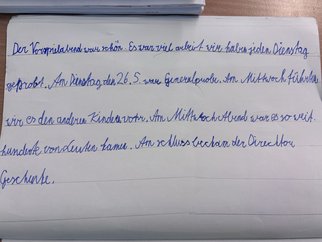 Der Vorspielabend war schön. Es war viel arbeit wir haben jeden Dienstag
geprobt. Am Dienstag den 26.5. war Generalprobe. Am Mittwoch führten
wir es den anderen Kindern vorn. Am Mittwoch Abend war es so weit.
hunderte von Leuten kamen. Am schluss bekam der Direcktor
Geschenke.